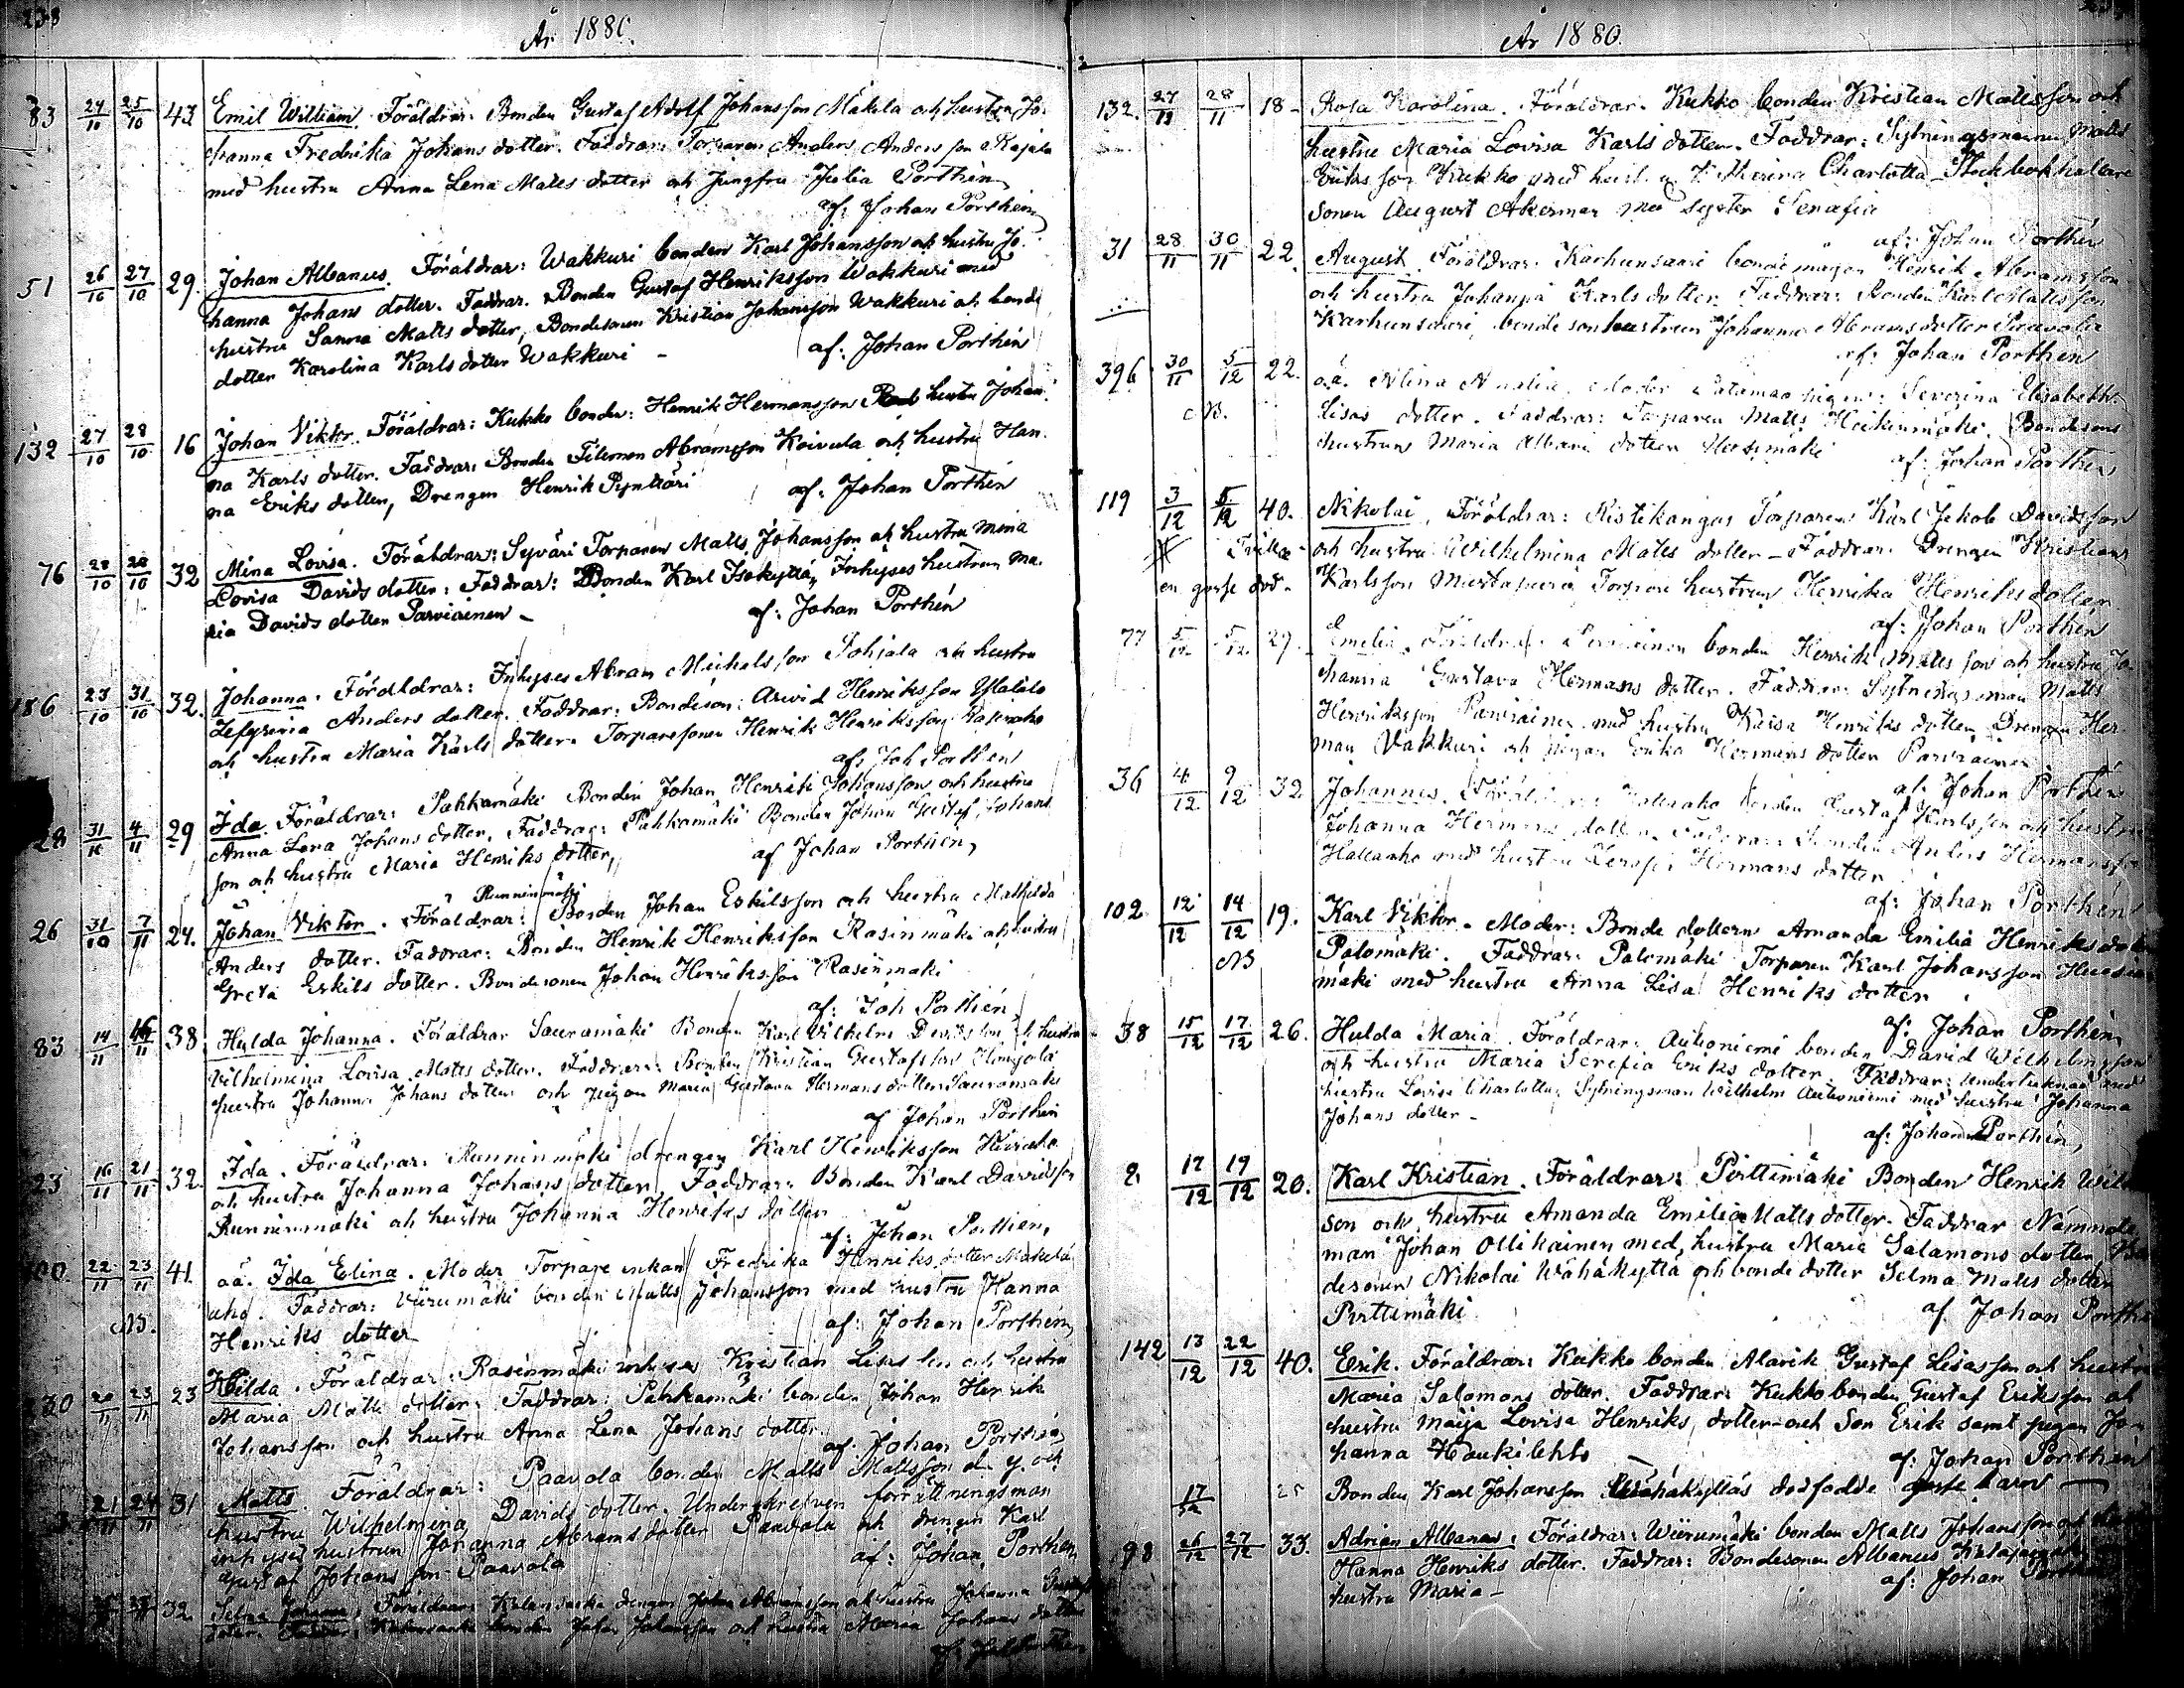 238
År 1880.
83 24/10 25/10 43 Emil William. Föräldrar: Bonden Gustaf Adolf Johansson Mäkela och hustru Jo-
hanna Fredrika Johans dotter. Faddrar: Torparen Anders Andersson Rajala
med hustru Anna Lena Matts dotter och Jungfru Julia Porthén
af: Johan Porthén
51 26/10 27/10 29. Johan Albanus. Föräldrar: Wakkuri bonden Karl Johansson och hustru Jo-
hanna Johans dotter. Faddrar: Bonden Gustaf Henriksson Wakkuri med
hustru Sanna Matts dotter, Bondesonen Kristian Johansson Wakkuri och bonde
dotter Karolina Karls dotter Wakkuri – af: Johan Porthén
132 27/10 28/10 16 Johan Viktor. Föräldrar: Kukko bonden: Henrik Hermansson hustru Johan-
na Karls dotter. Faddrar: Bonden Filemon Abramsson Koivula och hustru Han-
na Eriks dotter, Drengen Henrik Pynttäri af: Johan Porthén
76 28/10 28/10 32 Mina Lovisa. Föräldrar: Syväri Torparen Matts Johansson och hustru Mina
Lovisa Davids dotter: Faddrar: Bonden Karl Isokyttä, Inhyses hustrun Ma-
ria Davids dotter Parviainen – af: Johan Porthén
186 23/10 31/10 32. Johanna. Föräldrar: Inhyses Abram Michelsson Pohjala och hustru
Zefyrina Anders dotter. Faddrar: Bondeson: Arvid Henriksson Ylitalo
och hustru Maria Karls dotter. Torparesonen Henrik Henriksson
af: Joh Porthén
28 31/10 4/11 29 Ida. Föräldrar: Pahkamäki Bonden Johan Henrik Johansson och hustru
Anna Lena Johans dotter. Faddrar: Pahkamäki Bonden Johan Gustaf Johans-
son och hustru Maria Henriks dotter, af Johan Porthén
Runninmäki
26 31/10 7/11 24. Johan Viktor. Föräldrar: Bonden Johan Eskilsson och hustru Mathilda
Anders dotter. Faddrar: Bonden Henrik Henriksson Rasinmäki och hustru
Greta Eskils dotter. Bondesonen Johan Henriksson Rasinmäki
af: Joh Porthén
83 14/11 16/11 38. Hulda Johanna. Föräldrar Sauramäki Bonden Karl Vilhelm Davidsson och hustru
Vilhelmina Lovisa Matts dotter. Faddrar: Bonden Kristian Gustafsson
hustru Johanna Johans dotter och pigan Maria Gustava Hermans dotter Sauramäki
af Johan Porthén
23 16/11 21/11 32. Ida. Föräldrar: Runninmäki drengen Karl Henriksson
och hustru Johanna Johans dotter. Faddrar: Bonden Karl Davidsson
Runninmäki och hustru Johanna Henriks dotter
af: Johan Porthén,
100. 22/11 23/11 41. oä. Ida Elina. Moder Torpare enkan Fredrika Henriks dotter Mäkelä
aho. Faddrar: Viirumäki bonden Matts Johansson med hustru Hanna
NB. Henriks dotter af: Johan Porthén
230 20/11 23/11 23 Hilda. Föräldrar: Rasinmäki inhyses Kristian Lisas son och hustru
Maria Matts dotter. Faddrar: Pahkamäki bonden Johan Henrik
Johansson och hustru Anna Lena Johans dotter.
af. Johan Porthén
21/11 24/11 31 Matts. Föräldrar: Paavola bonden Matts Mattsson d. y. och
hustru Wilhelmina Davids dotter. Underskrefven förrättningsman
inhyses hustrun Johanna Abrams dotter Paavola och drengen Karl
Gustaf Johansson Paavola af: Johan Porthén
32 Selma Johanna. Föräldrar: drengen Johan Abramsson och hustru Johanna
dotter. Faddrar: bonden Johan Johansson och hustru Maria Johans dotter
af: Joh Porthén
År 1880.
132. 27/11 28/11 18 – Rosa Karolina. Föräldrar: Kukko bonden Kristian Mattsson och
hustru Maria Lovisa Karls dotter. Faddrar: Sytningsmannen Matts
Eriksson Kukko med hust. Charlotta
sonen August Åkerman med syster Serafia
af: Johan Porthén
31 28/11 30/11 22. August. Föräldrar: Karhunsaari bondemågen Henrik Abramsson
och hustru Johanna Karls dotter. Faddrar: Bonden Karl Mattsson
Karhunsaari, bondesonhustrun Johanna Abrams dotter Paavola
af: Johan Porthén
396 30/11 5/12 22. oä. Alina Amalia. Moder pigan: Severina Elisabeth
NB. Lisas dotter. Faddrar: Torparen Matts Heikinmäki. Bondesons
hustrun Maria Albani dotter af: Johan Porthén
119 3/12 5/12 40. Nikolai. Föräldrar: Ristikangas Torparen Karl Jakob Davidsson
Trilla- och hustru Wilhelmina Matts dotter – Faddrar: Drengen Kristian
en gosse död- Karlsson Mustapuro Torpare hustrun Henrika Henriks dotter
af: Johan Porthén
77 5/12 5/12 29. Emelia. Föräldrar: Parviainen bonden Henrik Mattsson och hustru Jo-
hanna Gustava Hermans dotter. Faddrar: Sytningsman Matts
Henriksson Parviainen med hustru Kaisa Henriks dotter, Drengen Her-
man Vakkuri och pigan Erika Hermans dotter Parviainen
af: Johan Porthén
36 4/12 9/12 32 Johannes. Föräldrar: Hallaaho bonden Gustaf Karlsson och hustru
Johanna Hermans dotter. Faddrar: Bonden Anders Hermansson
Hallaaho med hustru Hermans dotter
af: Johan Porthén
102 12/12 14/12 19. Karl Viktor. – Moder: Bonde dottern Amanda Emilia Henriks dotter
NB Palomäki. Faddrar: Palomäki Torparen Karl Johansson
mäki med hustru Anna Lisa Henriks dotter
af: Johan Porthén
38 15/12 17/12 26. Hulda Maria. Föräldrar: Autioniemi bonden David Wilhelmsson
och hustru Maria Serefia Eriks dotter. Faddrar: Undertecknad med
hustru Lovisa Charlotta, Sytningsman Wilhelm Autioniemi med hustru Johanna
Johans dotter –
af: Johan Porthén,
2. 17/12 19/12 20. Karl Kristian. Föräldrar: Pirttimäki Bonden Henrik
son och hustru Amanda Emilia Matts dotter. Faddrar Nämnde
man Johan Ollikainen med, hustru Maria Salamons dotter, Bon-
desonen Nikolai Wähäkyttä och bonde dotter Selma Matts dotter
Pirttimäki af Johan Porthén
142 13/12 22/12 40. Erik. Föräldrar: Kukko bonden Alarik Gustaf Lisasson och hustru
Maria Salomons dotter. Faddrar: Kukko bonden Gustaf Eriksson och
hustru Maija Lovisa Henriks dotter och Son Erik samt pigan Jo-
hanna Haukilehto af: Johan Porthén
17/12 25 Bonden Karl Johansson Wähäkyttäs dödfödde gosse barn –
98 26/12 27/12 33. Adrian Albanus: Föräldrar: Wiirumäki bonden Matts Johansson och
Hanna Henriks dotter. Faddrar: Bondesonen Albanus
hustru Maria – af: Johan Porthén